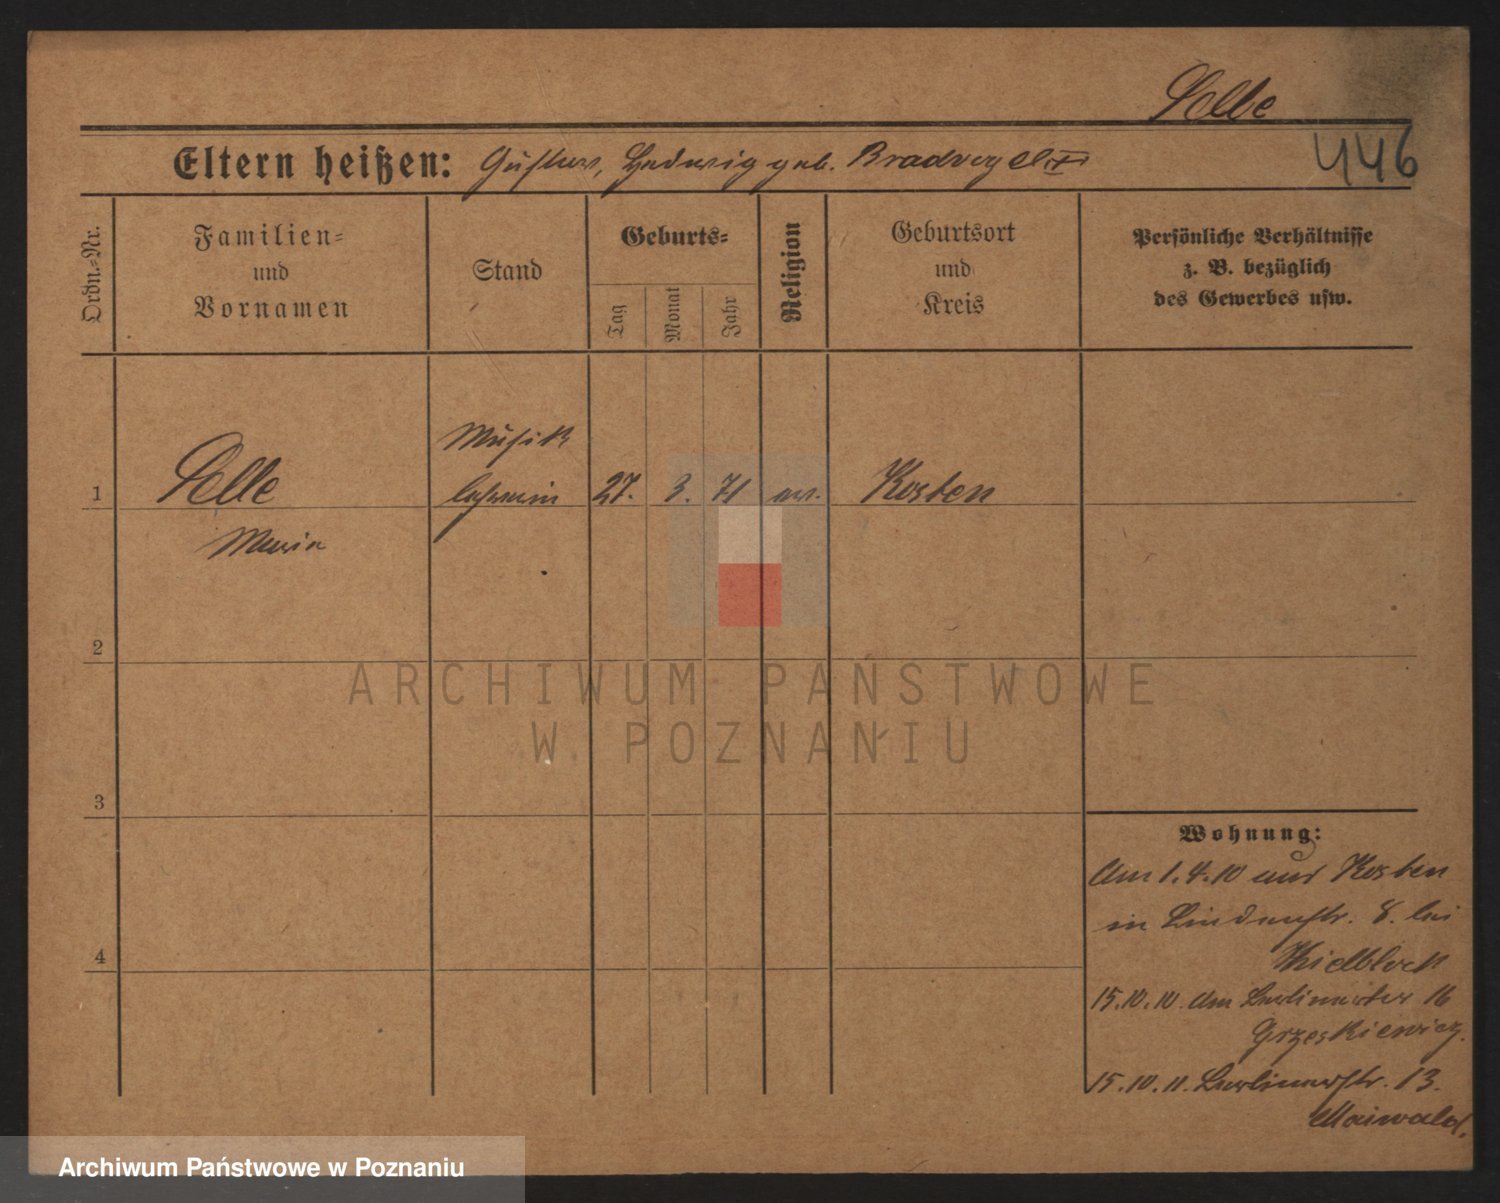 Selle
Eltern heißen: Gustav, Hedwig geb. Bradvogel
446
Ordn.=Nr.
Familien=
und
Vornamen
Stand
Geburts=
Tag
Monat
Jahr
Religion
Geburtsort
und
Kreis
Persönliche Verhältnisse
z. B. bezüglich
des Gewerbes usw.
1
Selle
Maria
Musik
lehrerin
27. 3. 71 ev. Kosten
2
3
4
Wohnung:
Am 1.4.10 aus Kosten
in Lindenstr. 8. bei
Thielblock
15.10.10. Am Berlinertor 16
Grzeskiewicz.
15.10.11. Berlinerstr. 13.
Maiwald.
ARCHIWUM PAŃSTWOWE
W POZNANIU
Archiwum Państwowe w Poznaniu